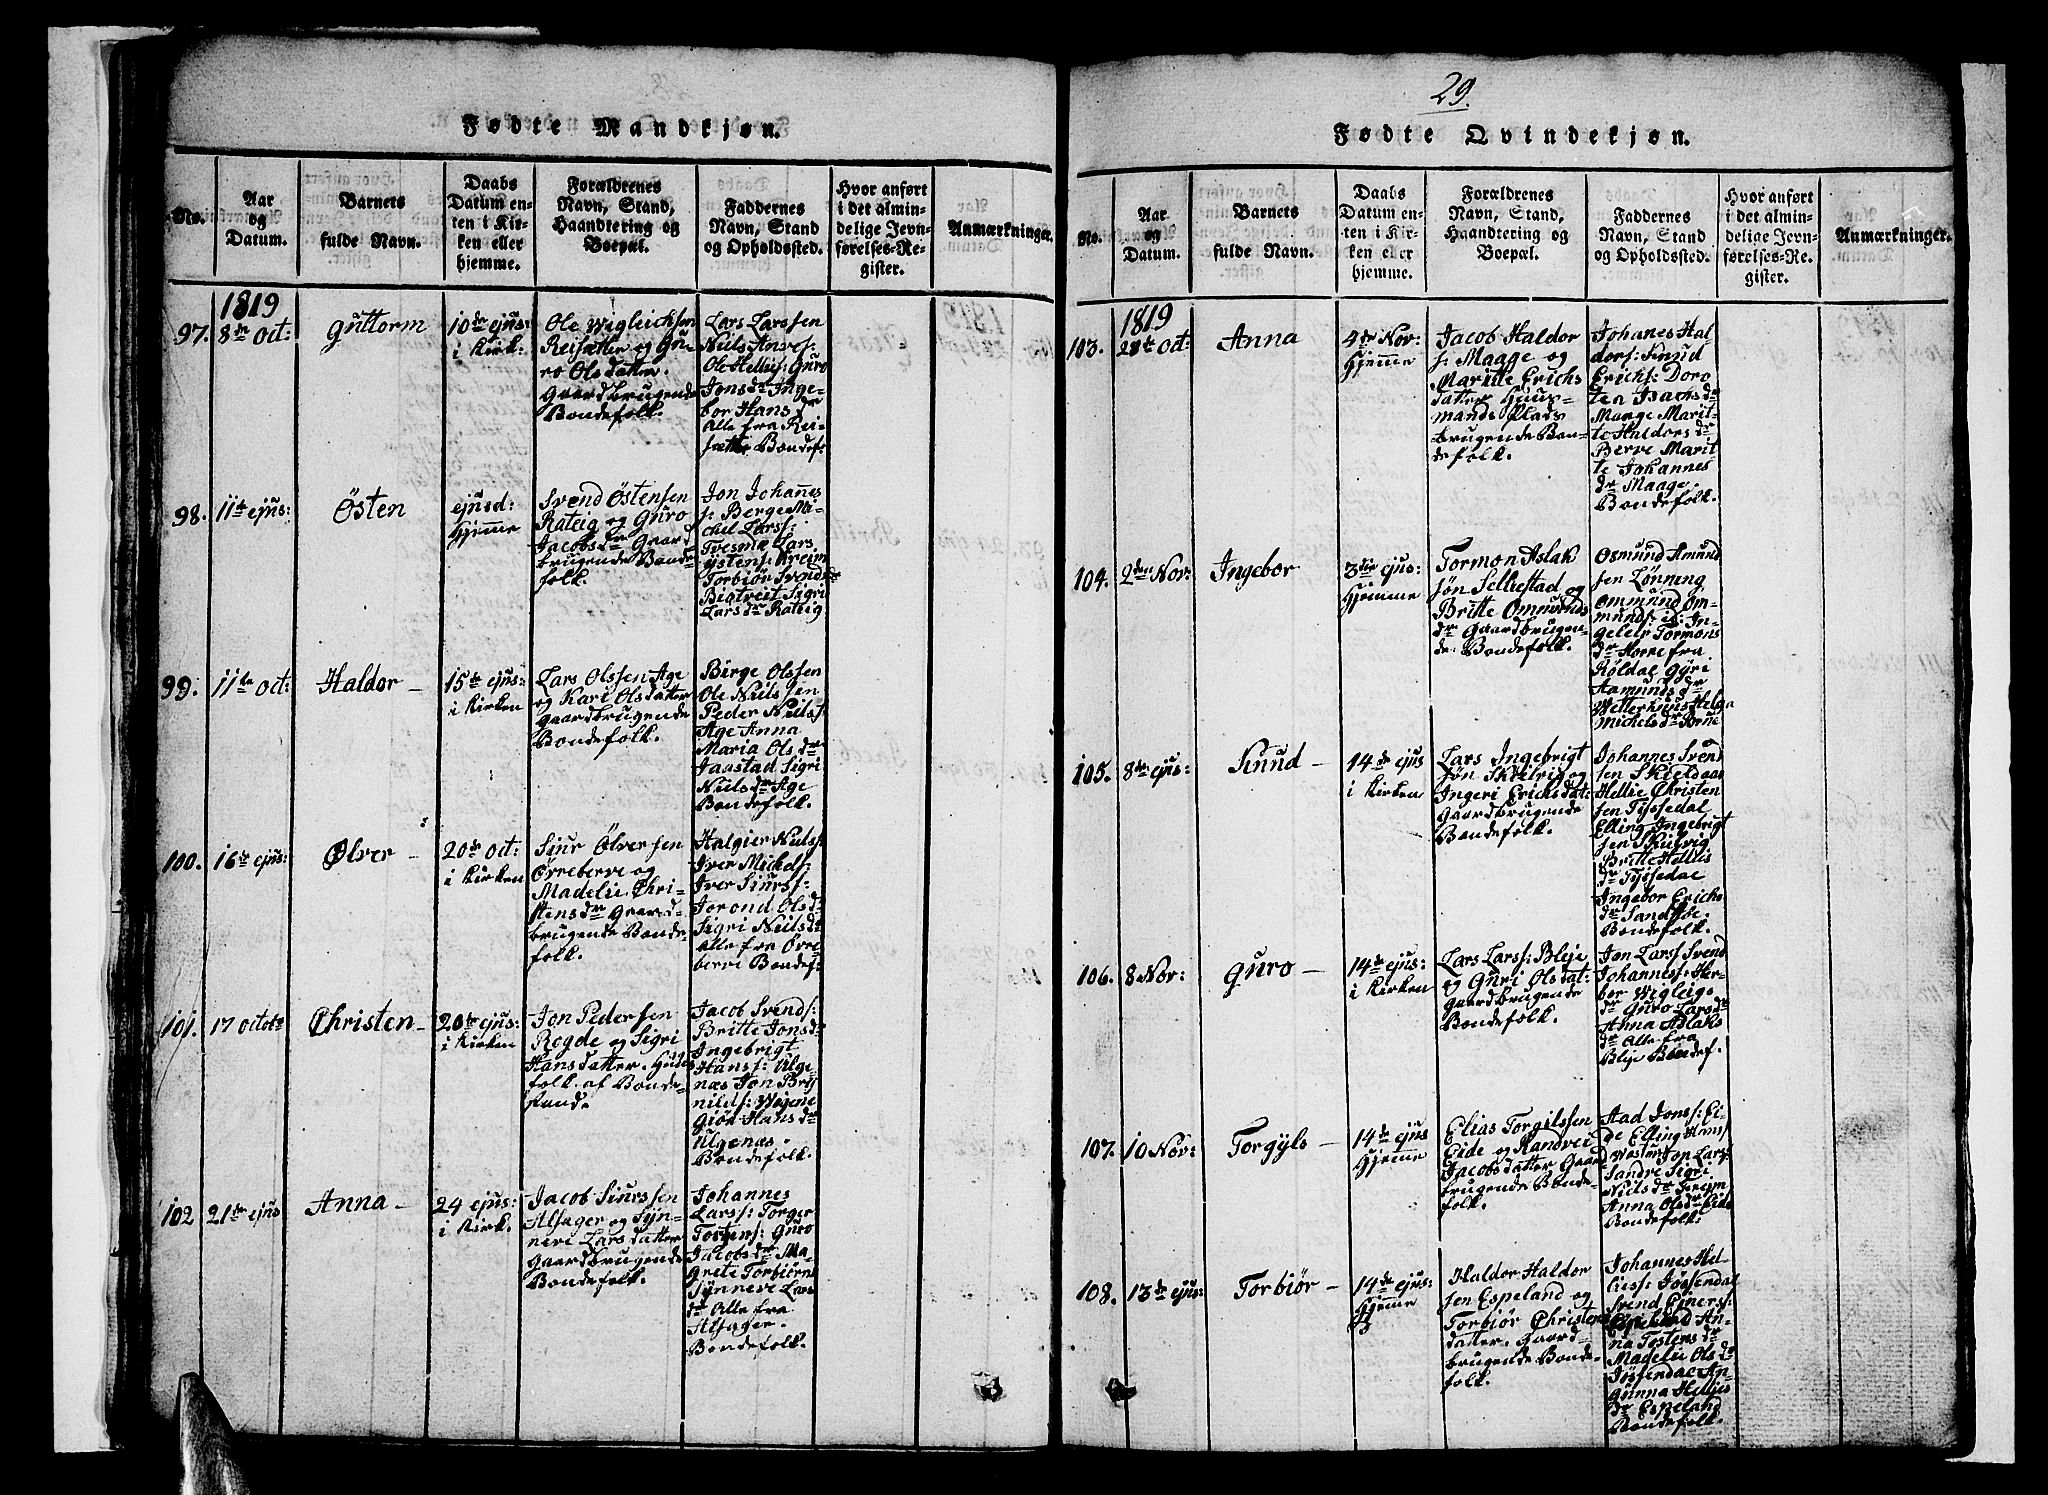 Fødte Mandkjøn.
No.
Aar
og
Datum.
Barnets
fulde Navn.
Daabs
Datum en-
ten i Kir-
ken eller
hjemme.
Forældrenes
Navn, Stand,
Haandtering og
Boepæl.
Faddernes
Navn, Stand
og Opholdssted.
Hvor anført
i det almin-
delige Jevn-
førelses-Re-
gister.
Anmærkninger.
1819
97.
8de Oct:
Guttorm
10de ejus:
i Kirk:
Ole Wigleichsen
Reisæter og Gu-
ro Olsdatter.
Gaardbrugende
Bondefolk.
Lars Larssen
Niils
Ole Hellis: Guro
Jonsdr Inge-
bor Hansdr
Alle fra Rei-
sætter Bondef:
98.
11te ejus:
Östen
ejusd:
Hjemme
Svend Östensen
Rateig og Guro
Jacobsdr Gaard
brugende Bonde
folk.
Jon Johannes
s: Berge Mi-
chel Larss:
Tvesme Lars
Östens: Freim
Torbiör Svendsdr
Bistveit Sigri
Larsdr Rateig
99.
11te Oct:
Haldor –
15de ejus:
i Kirken
Lars Olssen Age
og Kari Olsdatter
Gaardbrugende
Bondefolk.
Börge Olssen
Ole Niilssen
Peder Niilss:
Age Anna
Maria Olsdr
Jaastad Sigri
Nielsdr Age
Bondefolk.
100.
16de ejus:
Ölver –
20de Oct:
i Kirken
Siur Ölversen
Övreberve og
Madelie Chri-
stensdr Gaard-
brugende Bonde-
folk.
Halgier Niilss:
Iver Michels:
Iver Siurss:
Jorond Olsd:
Sigri Nielsdr
Alle fra Övre
berve Bondef:
101.
17 Octobr
Christen –
20de ejus:
i Kirken
Jon Pedersen
Rogde og Sigri
Hansdatter. Huus
folk af Bonde-
stand.
Jacob Svends:
Britte Jonsdr
Ingebrigt
Hanss: Ulge-
næs Jon Bry
nilds:
Giör Hansdr
Ulgenæs.
Bondefolk.
102
21de ejus
Anna –
24 ejus:
i Kirk.
Jacob Siurssen
Alsager og Syn-
neve Larsdatter
Gaardbrugende
Bondefolk.
Johannes
Larss: Torger
Tostens: Guro
Jacobsdr Ma-
grete Torbiörns
Synneve Lars
dr Alle fra
Alsager.
Bondefolk.
29.
Fødte Qvindekjøn.
No.
Aar
og
Datum.
Barnets
fulde Navn.
Daabs
Datum en-
ten i Kir-
ken eller
hjemme.
Forældrenes
Navn, Stand,
Haandtering og
Boepæl.
Faddernes
Navn, Stand
og Opholdssted.
Hvor anført
i det almin-
delige Jevn-
førelses-Re-
gister.
Anmærkninger.
1819
103.
28de Oct:
Anna
4de Nov:
Hjemme
Jacob Haldor
s: Maage og
Maritte Erichs
datter Huus-
mands Plads
brugende Bon-
defolk.
Johanes Hal-
dors: Knud
Erichs: Doro
tea Isachsdr
Maage Marit-
te Haldorsdr
Berve Marit
te Johannes
dr Maage.
Bondefolk.
104.
2den Nov:
Ingebor
3die ejus:
Hjemme
Tormon Aslak
sön Selliestad og
Britte Omunds
dr Gaardbrugen-
de Bondefolk.
Osmund Amund
sen Lönning
Ommund Om-
munds: id: In-
geleiv Tormons
dr Horre fra
Röldal Gyri
Aamundsdr
Helga
Michelsdr
105.
8de ejus:
Knud –
14de ejus
i Kirken
Lars Ingebrigt
sön Skielvig og
Ingeri Erichsdat:
Gaardbrugende
Bondefolk.
Johannes Svend
sen Skieldaas
Hellie Christen
sen Tyssedal
Elling Ingebrigt
sen Skielvig
Britte Hellis
dr Tyssedal
Ingebor Erichs
dr Sandsöe.
Bondefolk.
106.
8 Nov:
Guro –
14de ejus:
i Kirken
Lars Larss: Bleje
og Guri Olsdat:
Gaardbrugende
Bondefolk.
Jon Larss: Svend
Johanness: Her-
bor Wigleigs
dr Guro Larsdr
Anna Aslaks
dr Alle fra
Bleje Bondef.
107.
10 Nov:
Torgyls –
14de ejus
Hjemme
Elias Torgilssen
Eide og Randvei
Jacobsdatter Gaard
brugende Bonde-
folk.
Aad Jonss: Ei-
de Elling Hans
Jon Lars:
Sandre Sigri
Nielsdr Freim
Anna Olsdr Eide
Bondefolk.
108.
13de ejus:
Torbiör –
14de ejus:
Hjemme
Haldor Haldor
sen Espeland og
Torbiör Christens
datter. Gaard-
brugende Bonde-
folk.
Johannes Hel-
liess: Jössendal
Svend Ejners:
Espeland An-
na Tostensdr
Madelie Olsdr
Jössendal An-
gunna Hellies
Dr Espeland
Bondefolk.